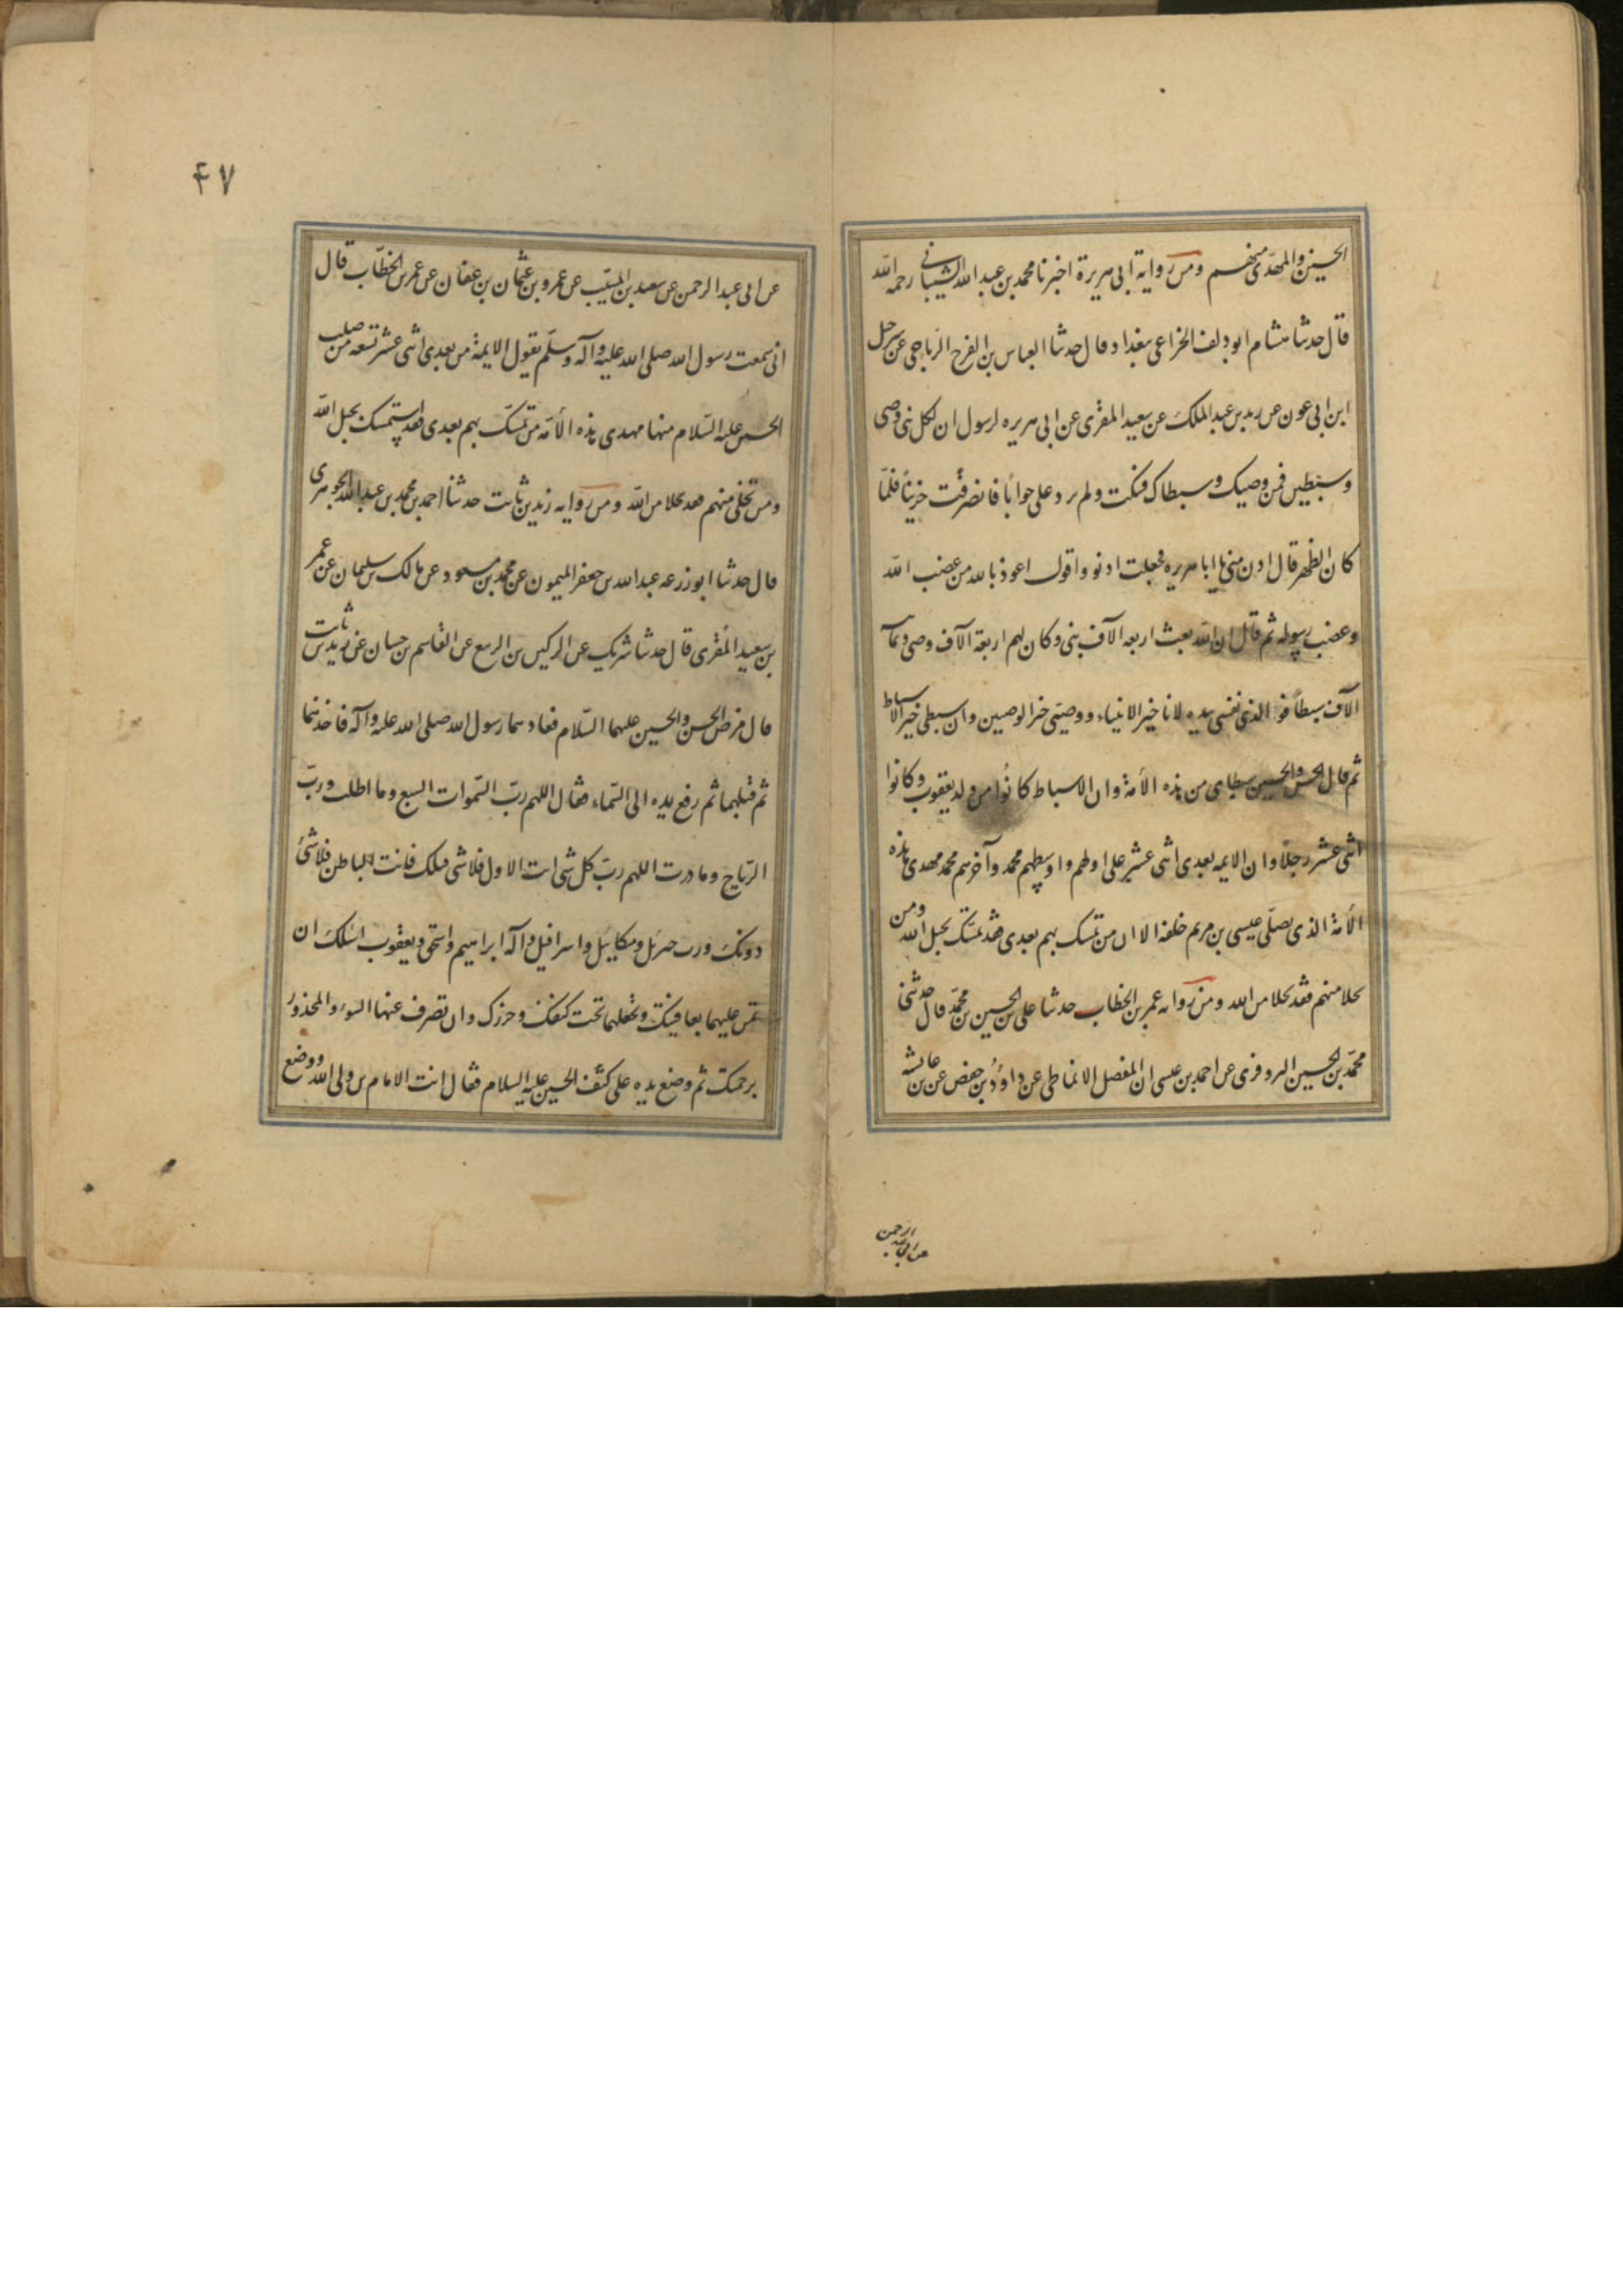 الحسين والمهدى منهم ومن رواية ابى هريرة اخبرنا محمد بن عبد الله الشيبانى رحمه الله
قال حدثنا هشام ابو دلف الخزاعى ببغداد قال حدثنا العباس بن الفرح الرياحى عن شرحبيل
ابن ابى عون عن يزيد بن عبد الملك عن سعيد المقرى عن ابى هريره لرسول ان لكل نبى وصى
وسبطين فمن وصيك وسبطاك فسكت ولم يرد على جوابا فانصرفت حزينا فلما
كان الظهر قال ادن منى يا ابا هريره فجعلت ادنو واقول اعوذ بالله من غضب الله
وغضب رسوله ثم قال ان الله بعث اربعه الآف نبى وكان لهم اربعة الآف وصى وثمانية
الآف سبطاً فو الذى نفسى بيده لانا خير الانبياء ووصيى خير الوصيين وان سبطى خير الاسباط
ثم قال الحسن والحسين سبطاى من هذه الأمة وان الاسباط كانوا من ولد يعقوب وكانوا
اثنى عشر رجلاً وان الايمه بعدى اثنى عشر على اولهم واوسطهم محمد وآخرهم محمد مهدى هذه
الأمة الذى يصلى عيسى بن مريم خلفه الا ان من تمسك بهم بعدى فقد تمسك بحبل الله ومن
تخلا منهم فقد تخلا من الله ومن روايه عمر بن الخطاب حدثنا على بن الحسين بن محمد قال حدثنى
محمد بن الحسين البزوفرى عن احمد بن عيسى ان المفضل الانماطى عن داود بن حفص عن بن عائشه
عن ابى عبد الرحمن
٤٧
عن ابى عبد الرحمن عن سعيد بن المسيب عن عمرو بن عثمان بن عفان عن عمر بن الخطاب قال
انى سمعت رسول الله صلى الله عليه وآله وسلم يقول الايمة من بعدى اثنى عشر تسعه من صلب
الحسين عليه السلام منها مهدى هذه الأمة من تمسك بهم بعدى فقد استمسك بحبل الله
ومن تخلى منهم فقد تخلا من الله ومن روايه زيد بن ثابت حدثنا احمد بن محمد بن عبد الله الجوهرى
قال حدثنا ابو زرعه عبد الله بن جعفر الميمون عن محمد بن مسعود عن مالك بن سليمان عن عمر
بن سعيد المقرى قال حدثنا شريك عن الركين بن الربيع عن القاسم بن حسان عن زيد بن ثابت
قال مرض الحسن والحسين عليهما السلام فعادهما رسول الله صلى الله عليه وآله فاخذهما
ثم قبلهما ثم رفع يده الى السماء فقال اللهم رب السموات السبع وما اظلت ورب
الرياح وما درت اللهم رب كل شى انت الاول فلا شى قبلك فانت الباطن فلا شئ
دونك ورب جبرئل وميكائيل واسرافيل وآله ابراهيم واسحق ويعقوب اسئلك ان
تمن عليهما بعافيتك وتجعلهما تحت كنفك وحرزك وان تصرف عنهما السوء والمحذور
برحمتك ثم وضع يده على كتف الحسين عليه السلام فقال انت الامام بن ولى الله ووضع